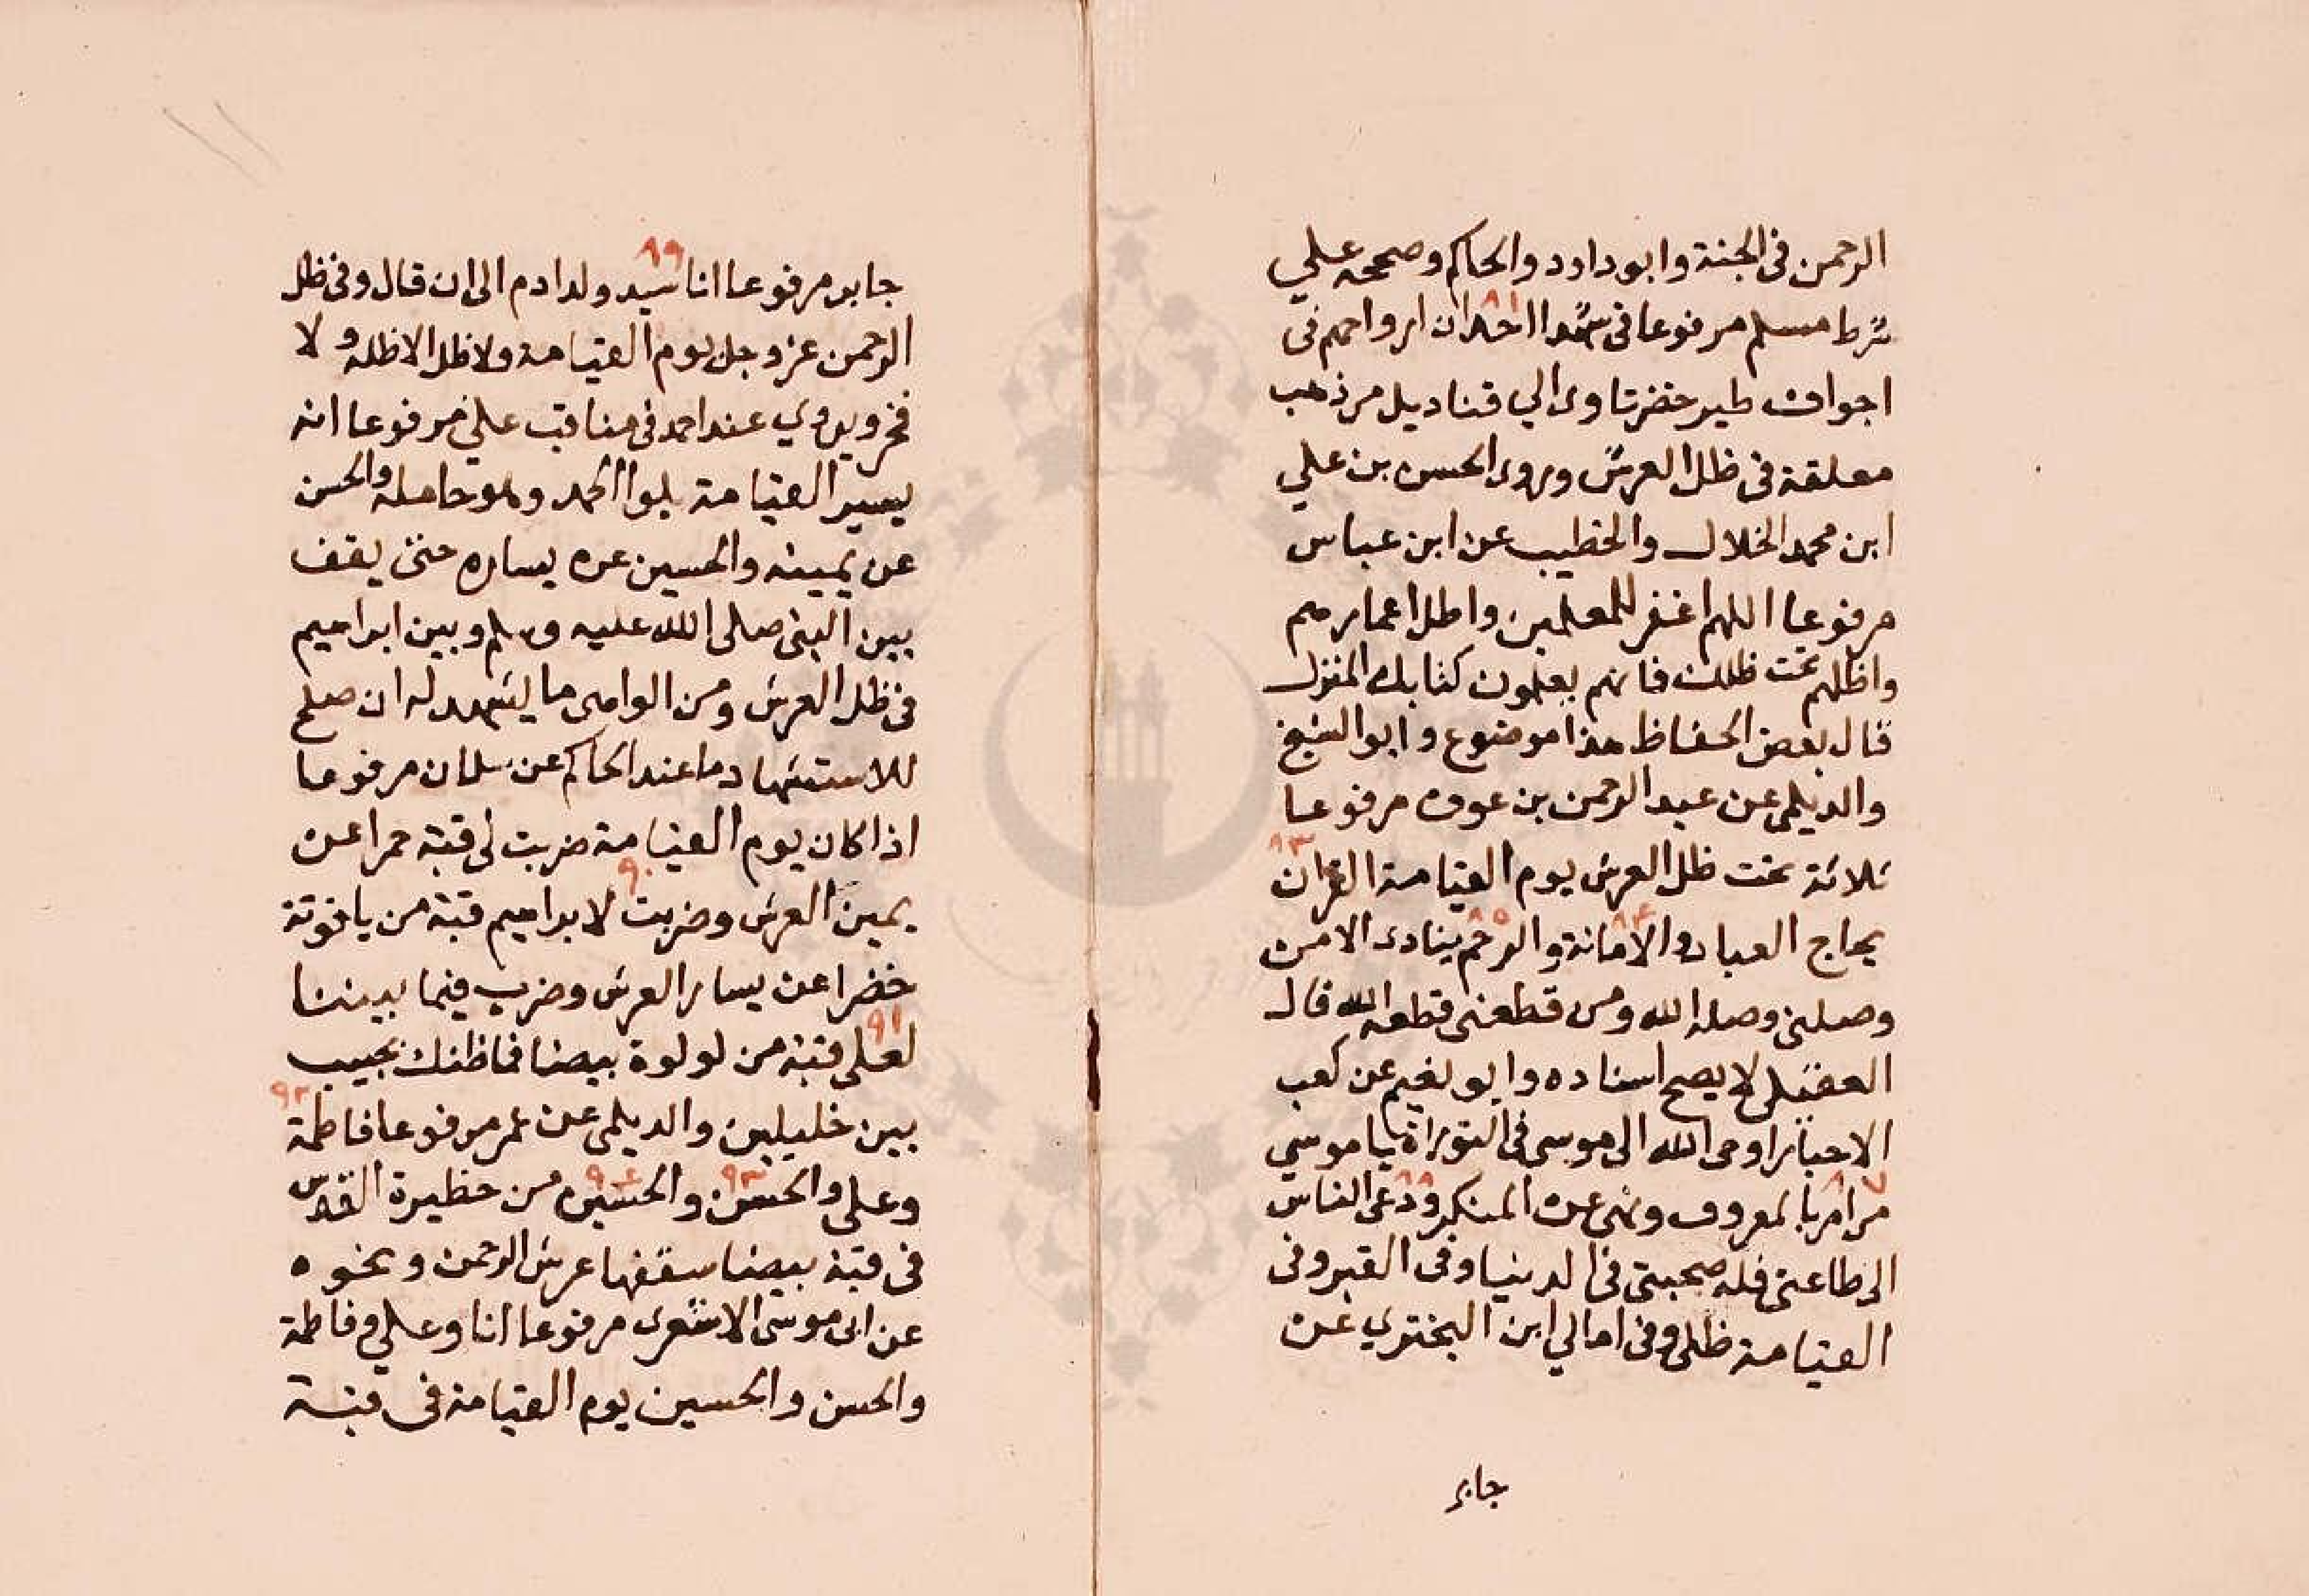 الرحمن فى الجنة وابو داود والحاكم وصححه علي
شرط مسلم مرفوعا فى شهدا احد ان ارواحهم فى
٨١
اجواف طير خضر تاوى الي قناديل من ذهب
معلقة فى ظل العرش وروى الحسن بن علي
ابن محمد الخلال والخطيب عن ابن عباس
مرفوعا اللهم اغفر للمعلمين واطل اعمارهم
واظلهم تحت ظلك فانهم يعلمون كتابك المنزل
قال بعض الحفاظ هذا موضوع وابو الشيخ
والديلمى عن عبد الرحمن بن عوف مرفوعا
٨٣
ثلاثة تحت ظل العرش يوم القيامة القران
يحاج العباد والامانة والرحم ينادى الا من
٨٤ ٨٥
وصلنى وصله الله ومن قطعنى قطعه الله قال
العقيلى لا يصح اسناده وابو نعيم عن كعب
الاحبار اوحى الله الى موسى فى التوراة يا موسي
من امر بالمعروف ونهى عن المنكر ودعى الناس
٨٨
الى طاعتى فله صحبتى فى الدنيا وفى القبر وفى
القيامة ظلى وفى امالي ابن البخترى عن
جابر
جابر مرفوعا انا سيد ولد ادم الى ان قال وفى ظل
٨٩
الرحمن عز وجل يوم القيامة ولا ظل الا ظله ولا
فخر ويروي عند احمد فى مناقب علي مرفوعا انه
يسير القيامة بلوا الحمد وهو حامله والحسن
عن يمينه والحسين عن يساره حتى يقف
بين النبى صلى الله عليه وسلم وبين ابراهيم
فى ظل العرش ومن الواهى ما يشهد له ان صلح
للاستشهاد ما عند الحاكم عن سلمان مرفوعا
اذا كان يوم القيامة ضربت لى قبة حمرا عن
يمين العرش وضربت لابراهيم قبة من ياقوتة
٩٠
خضرا عن يسار العرش وضرب فيما بيننا
لعلى قبة من لولوة بيضا فما ظنك بحبيب
٩١
بين خليلين والديلمى عن عمر مرفوعا فاطمة
٩٢
وعلى والحسن والحسين من حظيرة القدس
٩٣ ٩٤
فى قبة بيضا سقفها عرش الرحمن ونحوه
عن ابى موسى الاشعرى مرفوعا انا وعلي وفاطمة
والحسن والحسين يوم القيامة فى قبة